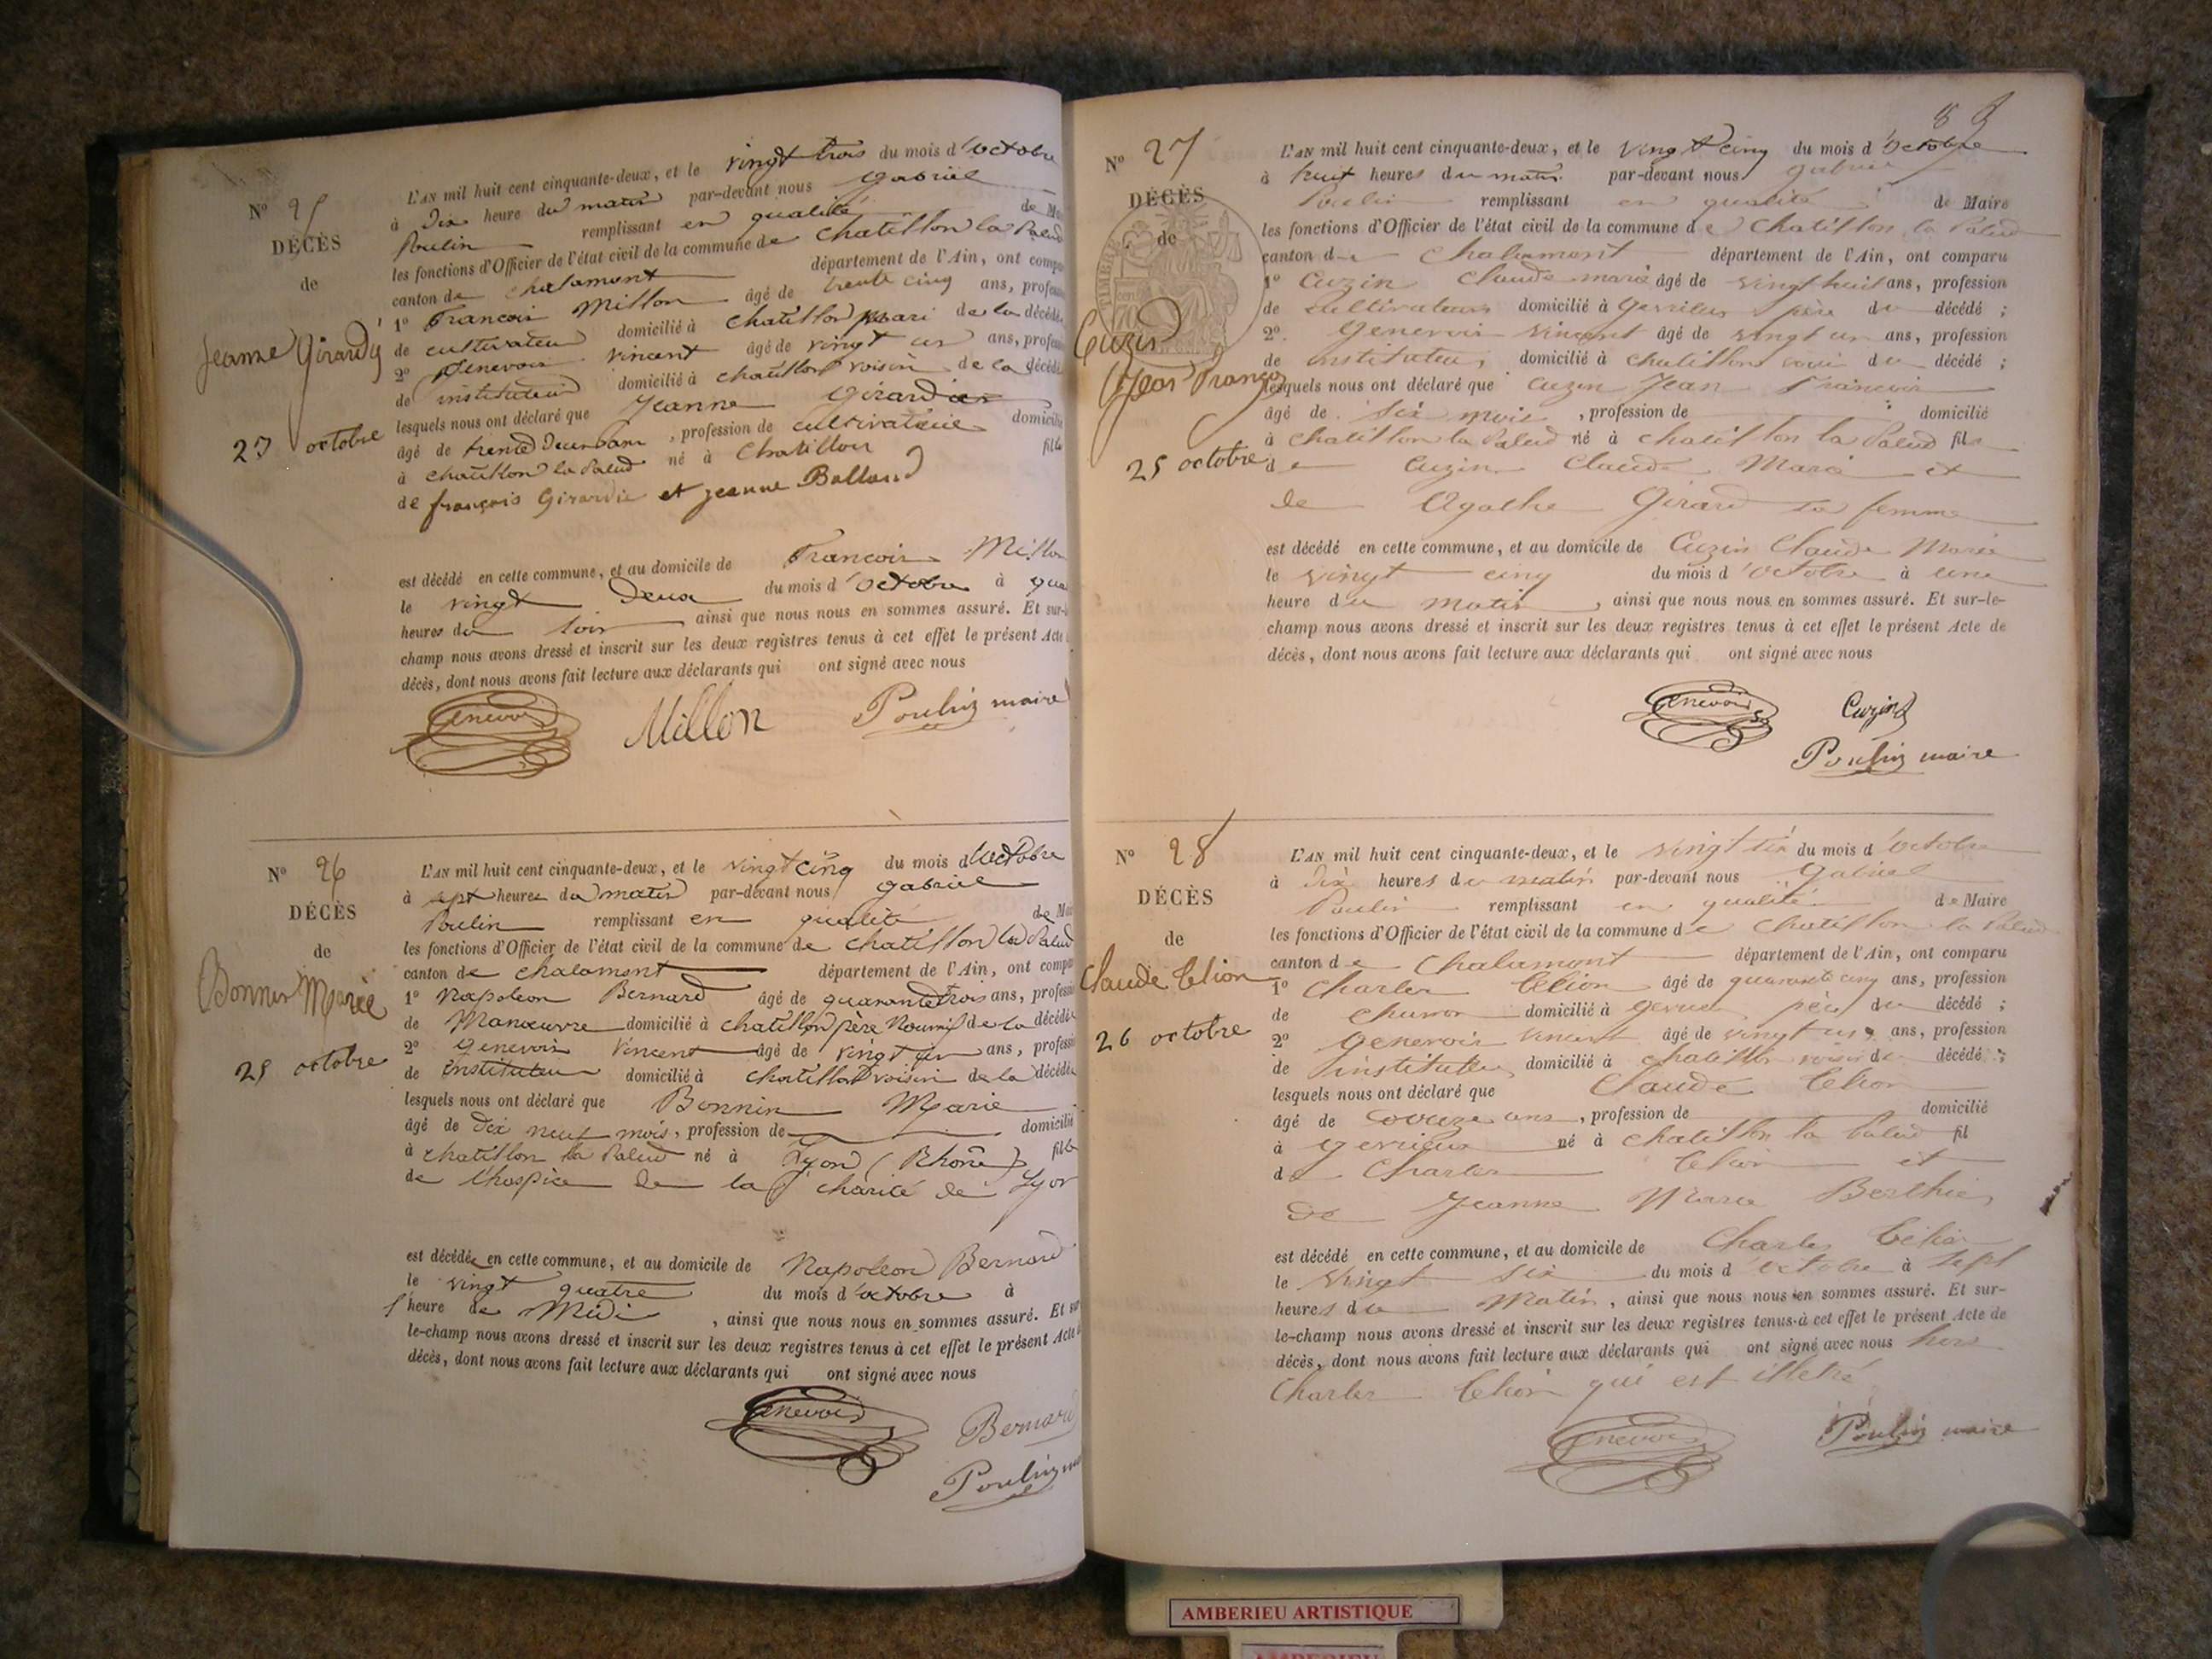 N° 25
DÉCÈS
de
Jeanne Girardy
23 octobre
L'AN mil huit cent cinquante-deux, et le vingt trois du mois d'octobre
à dix heure du matin par-devant nous gabriel
Poulin remplissant en qualité de Mai
les fonctions d'Officier de l'état civil de la commune de chatillon la Palud
canton de chalamont département de l'Ain, ont compa
1° Francois Millon âgé de trente cinq ans, profess
de cultivateur domicilié à chatillon mari de la décédée
2° Genevois vincent âgé de vingt un ans, profess
de instituteur domicilié à chatillon voisin de la décédé
lesquels nous ont déclaré que Jeanne Girardier
âgé de trente deux ans, profession de cultivatrice domicilié
à chatillon la Palud né à Chatillon fille
de françois Girardie et jeanne Balland
est décédé en cette commune, et au domicile de Francois Millon
le vingt Deux du mois d'octobre à qua
heures du soir ainsi que nous nous en sommes assuré. Et sur-l
champ nous avons dressé et inscrit sur les deux registres tenus à cet effet le présent Acte
décès, dont nous avons fait lecture aux déclarants qui ont signé avec nous
Genevois Millon Poulin maire
N° 26
DÉCÈS
de
Bonnin Marie
25 octobre
L'AN mil huit cent cinquante-deux, et le vingt cinq du mois d'octobre
à sept heures du matin par-devant nous gabriel
Poulin remplissant en qualité de Mai
les fonctions d'Officier de l'état civil de la commune de chatillon la Palud
canton de chalamont département de l'Ain, ont compa
1° Napoleon Bernard âgé de quarante trois ans, professi
de Manœuvre domicilié à chatillon père Nourricier de la décédée
2° Genevois Vincent âgé de vingt un ans, professi
de instituteur domicilié à chatillon voisin de la décédée
lesquels nous ont déclaré que Bonnin Marie
âgé de dix neuf mois, profession de domicilié
à chatillon la Palud né à Lyon (Rhône) fille
de l'hospice de la charité de Lyon
est décédée en cette commune, et au domicile de Napoleon Bernard
le vingt quatre du mois d'octobre à
l'heure de Midi, ainsi que nous nous en sommes assuré. Et sur
le-champ nous avons dressé et inscrit sur les deux registres tenus à cet effet le présent Acte
décès, dont nous avons fait lecture aux déclarants qui ont signé avec nous
Genevois Bernard
Poulin ma
N° 27
DÉCÈS
de
Cuzin
Jean Franço
25 octobre
L'AN mil huit cent cinquante-deux, et le vingt cinq du mois d'octobre
à huit heures du matin par-devant nous gabriel
Poulin remplissant en qualité de Maire
les fonctions d'Officier de l'état civil de la commune de Chatillon la Palud
canton de Chalamont département de l'Ain, ont comparu
1° Cuzin Claude marie âgé de vingt huit ans, profession
de cultivateur domicilié à Gevrieux père du décédé ;
2° Genevois vincent âgé de vingt un ans, profession
de instituteur, domicilié à chatillon voisin du décédé ;
lesquels nous ont déclaré que Cuzin Jean Francois
âgé de six mois, profession de domicilié
à chatillon la Palud né à chatillon la Palud fils
de Cuzin Claude Marie et
de Agathe Girard sa femme
est décédé en cette commune, et au domicile de Cuzin Claude Marie
le vingt cinq du mois d'octobre à une
heure du matin, ainsi que nous nous en sommes assuré. Et sur-le-
champ nous avons dressé et inscrit sur les deux registres tenus à cet effet le présent Acte de
décès, dont nous avons fait lecture aux déclarants qui ont signé avec nous
Genevois Cuzin
Poulin maire
N° 28
DÉCÈS
de
Claude Célion
26 octobre
L'AN mil huit cent cinquante-deux, et le vingt six du mois d'octobre
à dix heures du matin par-devant nous Gabriel
Poulin remplissant en qualité de Maire
les fonctions d'Officier de l'état civil de la commune de Chatillon la Palud
canton de Chalamont département de l'Ain, ont comparu
1° Charles Célion âgé de quarante cinq ans, profession
de domicilié à père du décédé ;
2° Genevois vincent âgé de vingt un ans, profession
de instituteur, domicilié à chatillon voisin du décédé ;
lesquels nous ont déclaré que Claude Célion
âgé de ans, profession de domicilié
à Gevrieux né à chatillon la Palud fil
de Charles Célion et
de Jeanne Marie Berthier
est décédé en cette commune, et au domicile de Charles Célion
le vingt six du mois d'octobre à sept
heures du Matin, ainsi que nous nous en sommes assuré. Et sur-
le-champ nous avons dressé et inscrit sur les deux registres tenus à cet effet le présent Acte de
décès, dont nous avons fait lecture aux déclarants qui ont signé avec nous hors
Charles Célion qui est illetré
Genevois Poulin maire
AMBERIEU ARTISTIQUE
AMBERIEU